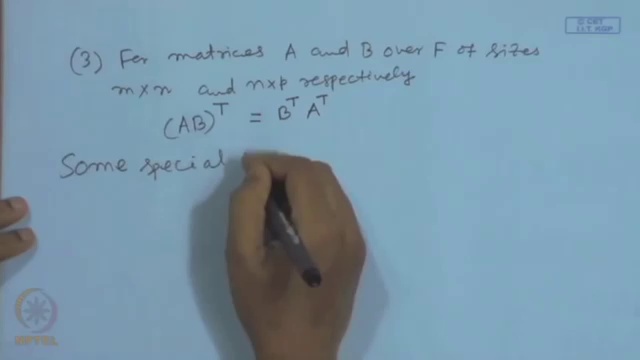 © CET
I.I.T. KGP
(3) For matrices A and B over F of sizes
m×n and n×p respectively
(AB)^T = B^T A^T
Some special
NPTEL